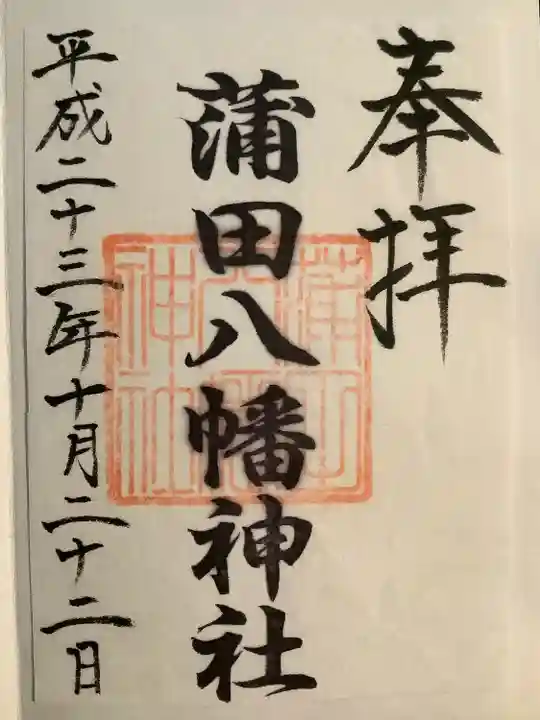 奉拝
蒲田八幡神社
平成二十三年十月二十二日